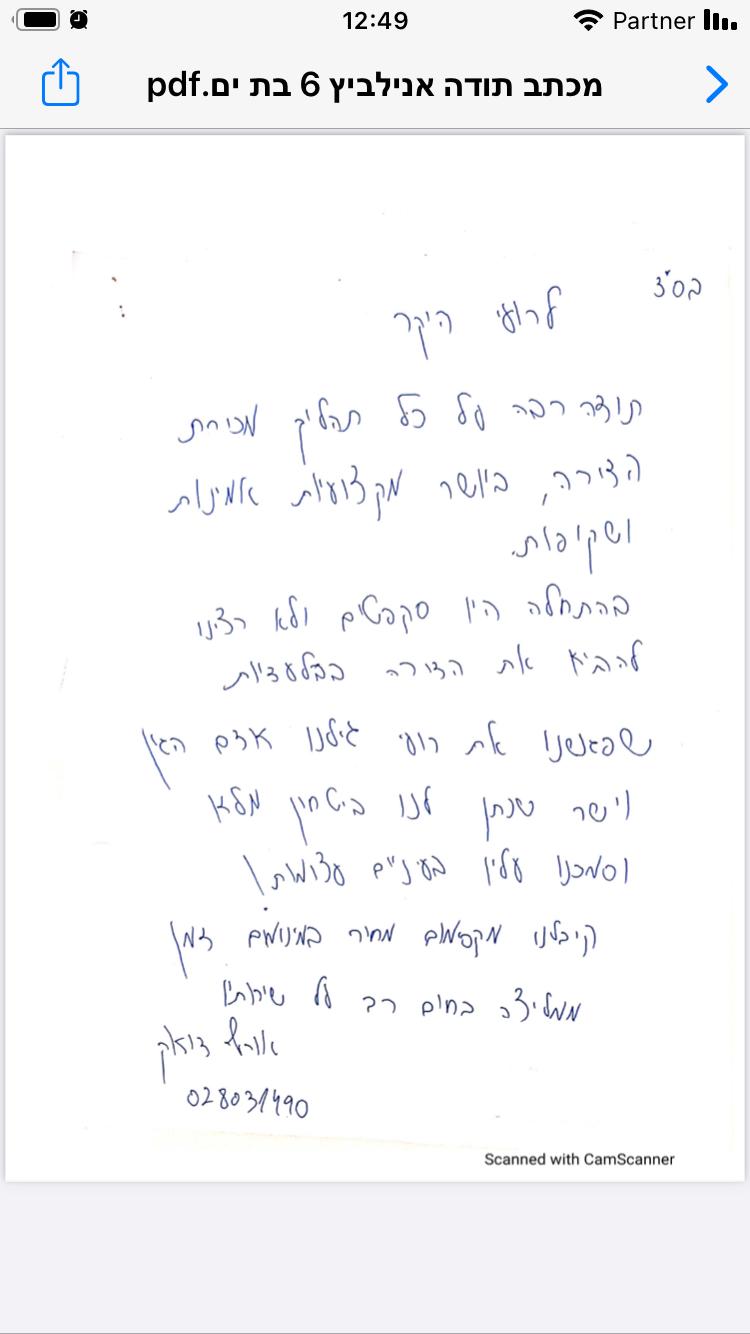 12:49
Partner
מכתב תודה אנילביץ 6 בת ים.pdf
בס"ד
לרועי היקר
תודה רבה על כל תהליך מכירת
הדירה, ביושר מקצועיות אמינות
ושקיפות.
בהתחלה היינו סקפטים ולא רצינו
להביא את הדירה בבלעדיות
שפגשנו את רועי גילנו אדם הגון
וישר שנתן לנו ביטחון מלא
וסמכנו עליו בעיניים עצומות!
קיבלנו מקסימום מחיר במינימום זמן
ממליצה בחום רב על שירותיו
דואק
028031490
Scanned with CamScanner